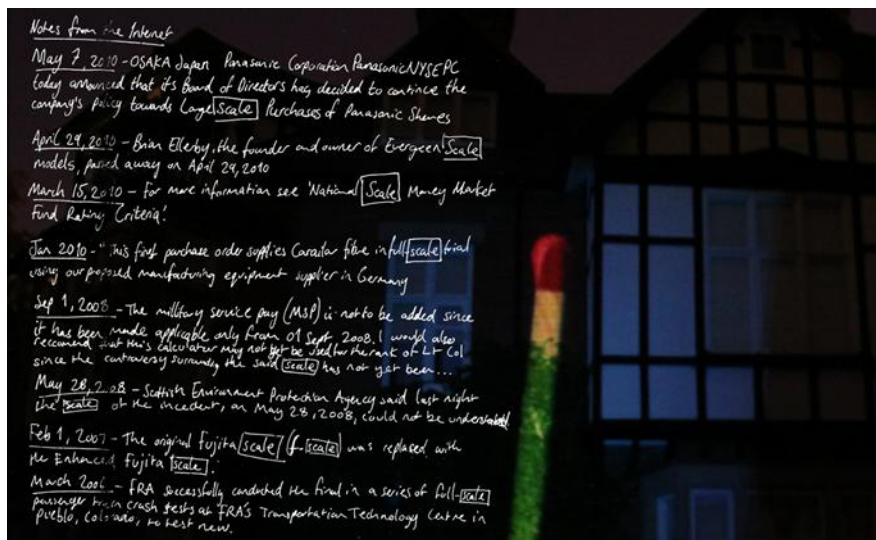 Notes from the Internet
May 7, 2010 - OSAKA Japan Panasonic Corporation PanasonicNYSEPC
today announced that its Board of Directors has decided to continue the
company's policy towards Large Scale Purchases of Panasonic Shares
April 29, 2010 - Brian Ellerby, the founder and owner of Evergreen Scale
models, passed away on April 29, 2010
March 15, 2010 - For more information see 'National Scale Money Market
Fund Rating Criteria'
Jan 2010 - "This first purchase order supplies fibre in full-scale trial
using our proposed manufacturing equipment supplier in Germany
Sep 1, 2008 - The millitary service pay (MSP) is not to be added since
it has been made applicable only from 01 Sept, 2008. I would also
reccomend that this calculator may not yet be used for the rank of Lt Col
since the controversy surrounding the said scale has not yet been...
May 28, 2008 - Scottish Environment Protection Agency said last night
the scale of the incedent, on May 28, 2008, could not be understated
Feb 1, 2007 - The original Fujita scale (f-scale) was replased with
the Enhanced Fujita scale.
March 2006 - FRA successfully conducted the final in a series of full-scale
passenger train crash tests at FRA's Transportation Technology Centre in
Pueblo, Colorado, to test new.